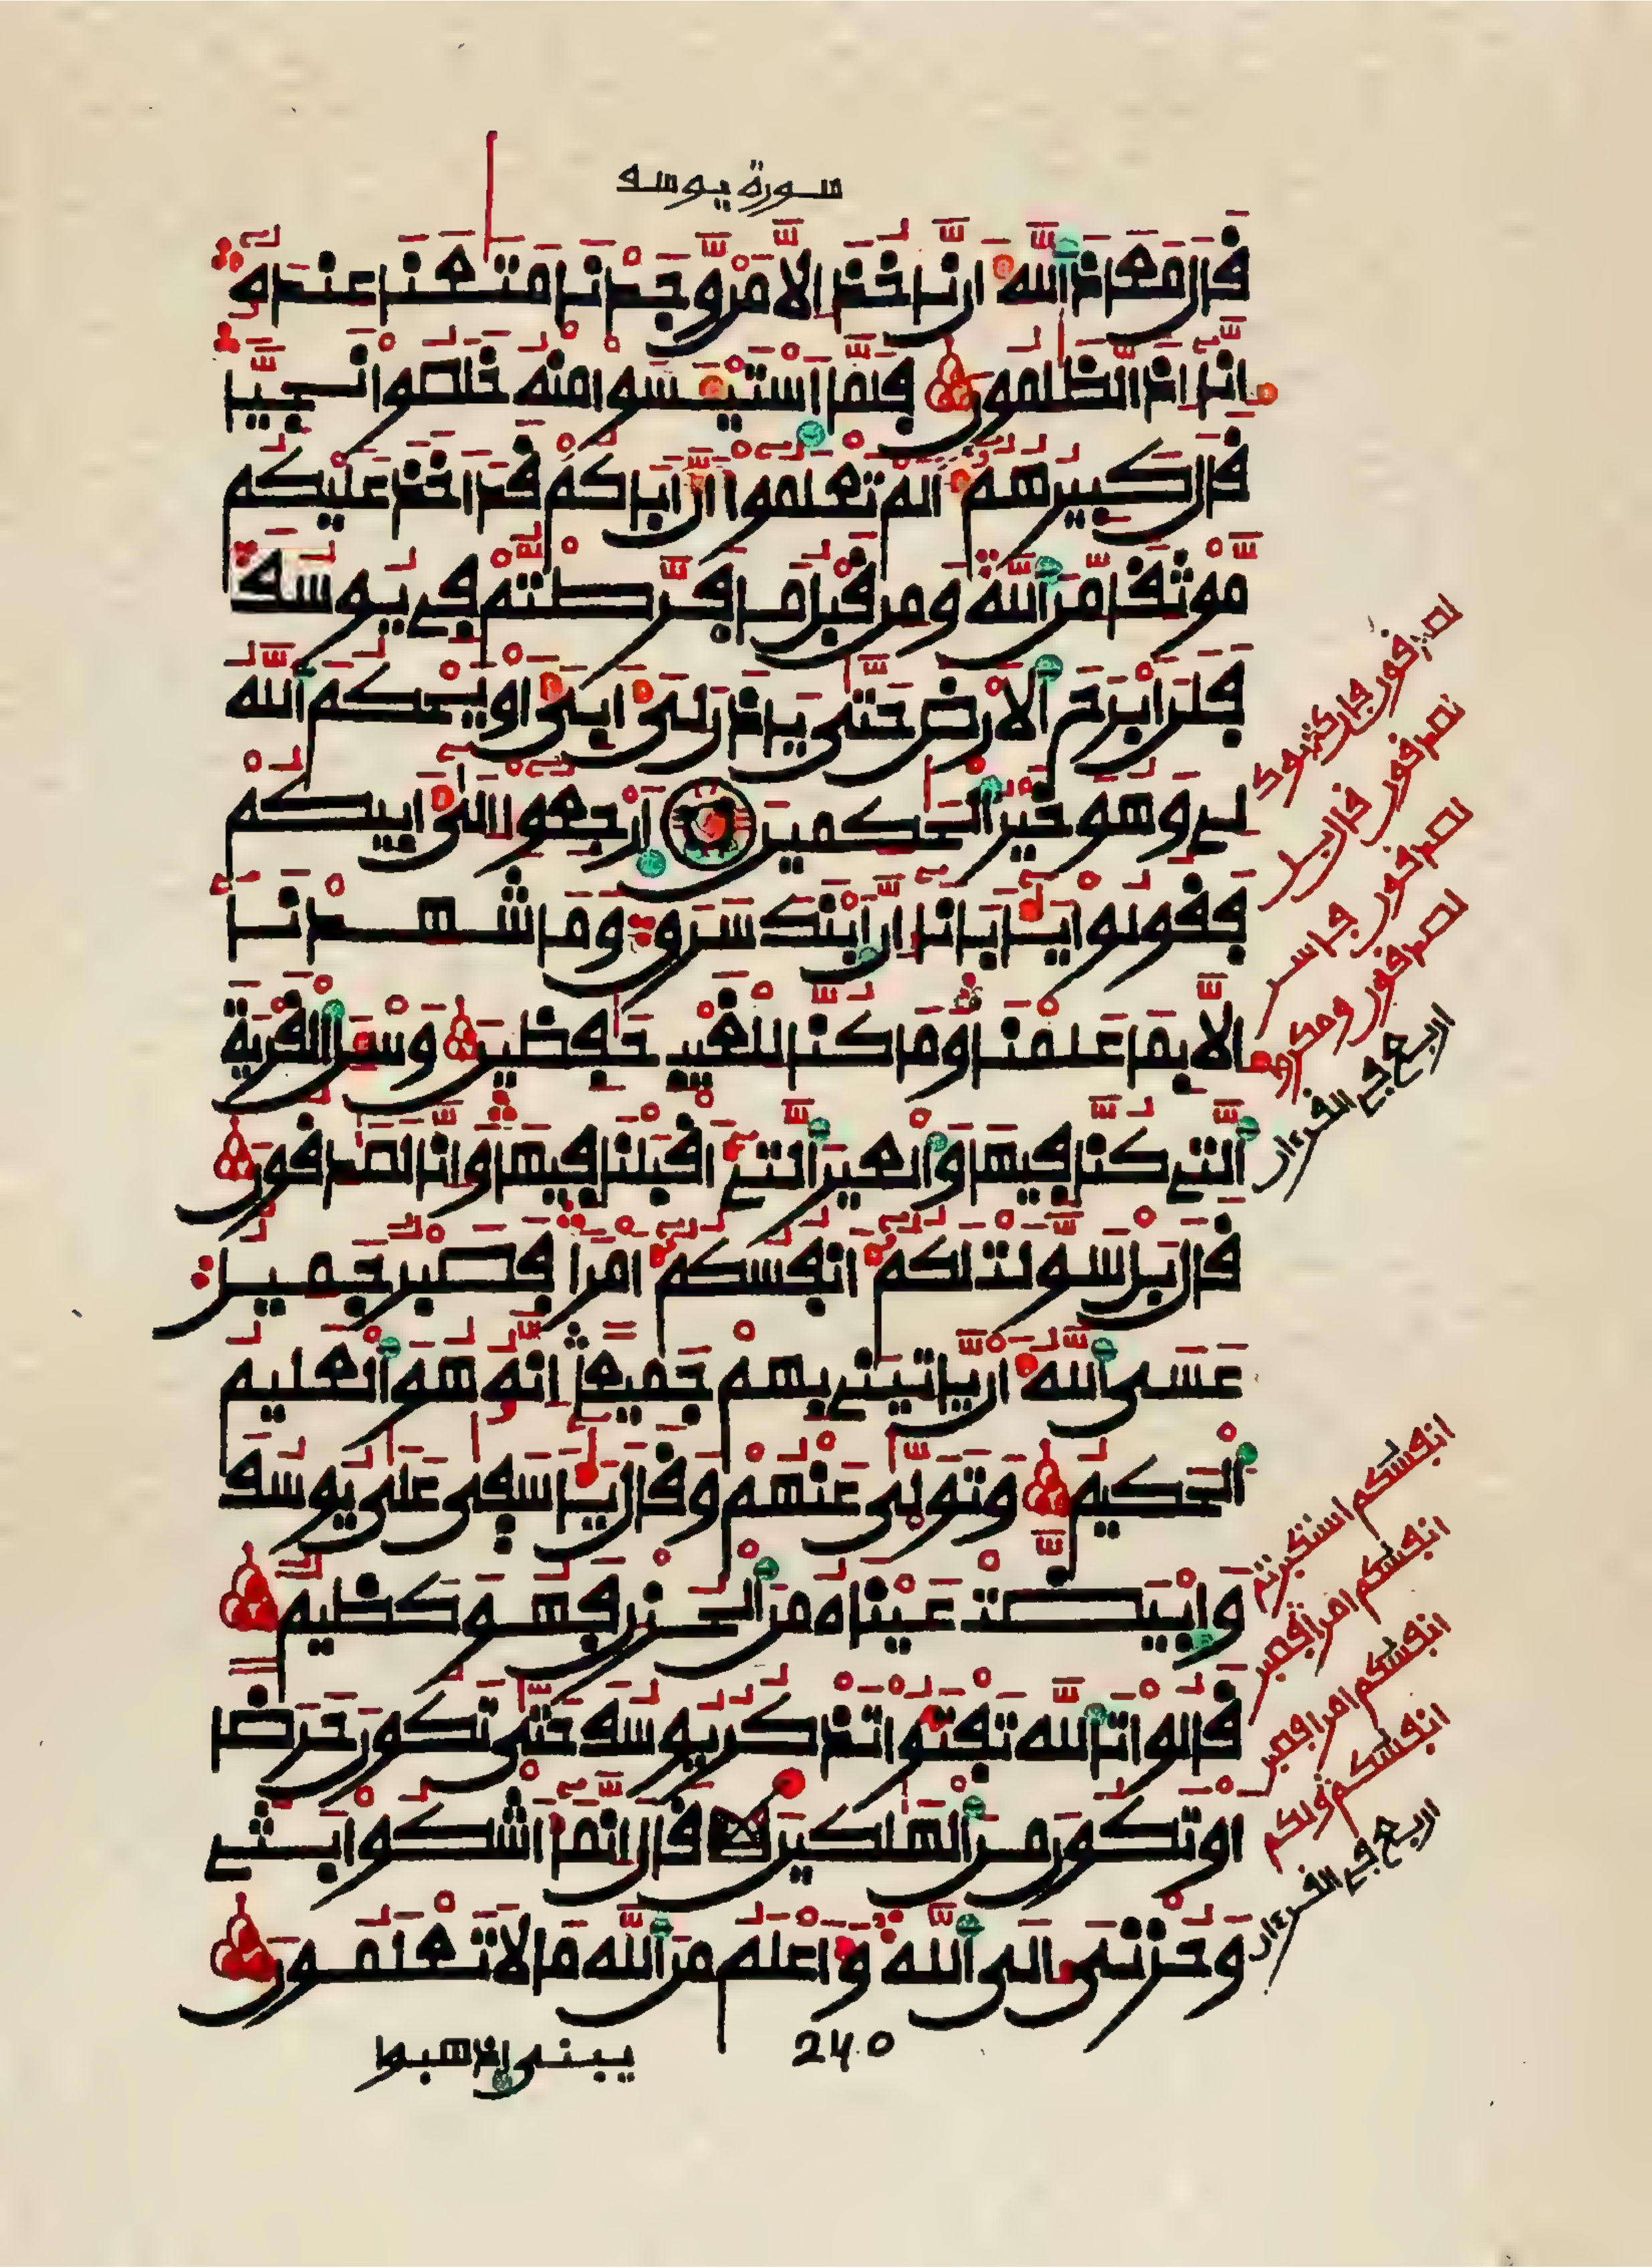 سورة يوسف
قال معاذ الله أن نأخذ إلا من وجدنا متعنا عنده
إنا إذا لظلمون فلما استيئسوا منه خلصوا نجيا
قال كبيرهم ألم تعلموا أن أباكم قد أخذ عليكم
موثقا من الله ومن قبل ما فرطتم في يوسف
فلن أبرح الأرض حتى يأذن لي أبي أو يحكم الله
لي وهو خير الحكمين ارجعوا إلى أبيكم
فقولوا يأبانا إن ابنك سرق وما شهدنا
إلا بما علمنا وما كنا للغيب حفظين وسئل القرية
التي كنا فيها والعير التي أقبلنا فيها وإنا لصدقون
قال بل سولت لكم أنفسكم أمرا فصبر جميل
عسى الله أن يأتيني بهم جميعا إنه هو العليم
الحكيم وتولى عنهم وقال يأسفى على يوسف
وابيضت عيناه من الحزن فهو كظيم
قالوا تالله تفتؤا تذكر يوسف حتى تكون حرضا
أو تكون من الهلكين قال إنما أشكوا بثي
وحزني إلى الله وأعلم من الله ما لا تعلمون
240
يبني اذهبوا
لصدقون قال بل
اربع في القرءان
أنفسكم استكبرتم
أنفسكم أمرا فصبر
أنفسكم أمرا فصبر
أنفسكم ولكم
اربع في القرءان